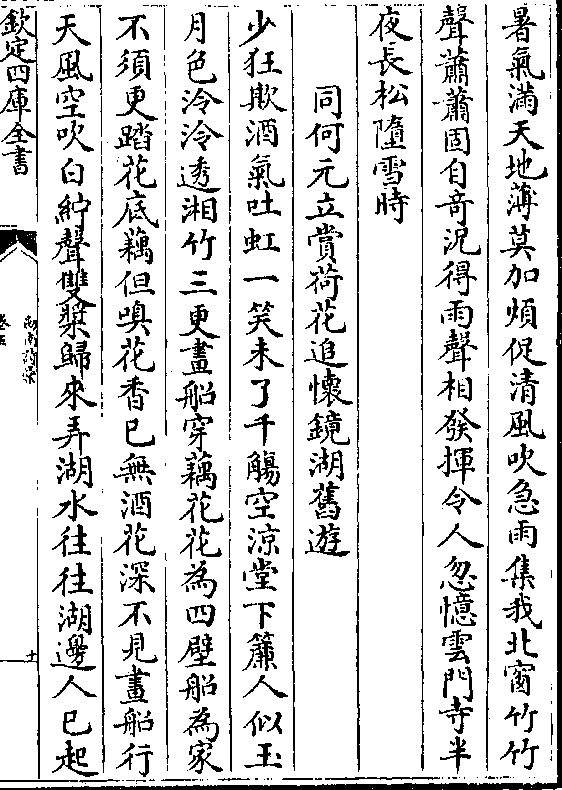 暑氣滿天地薄莫加煩促清風吹急雨集我北窗竹竹
聲蕭蕭固自奇況得雨聲相發揮令人忽憶雲門寺半
夜長松墮雪時
同何元立賞荷花追懷鏡湖舊遊
少狂欺酒氣吐虹一笑未了千觴空涼堂下簾人似玉
月色泠泠透湘竹三更畫船穿藕花花為四壁船為家
不須更踏花底藕但嗅花香已無酒花深不見畫船行
天風空吹白紵聲雙槳歸來弄湖水往往湖邊人已起
欽定四庫全書
劍南詩稾
卷五
十